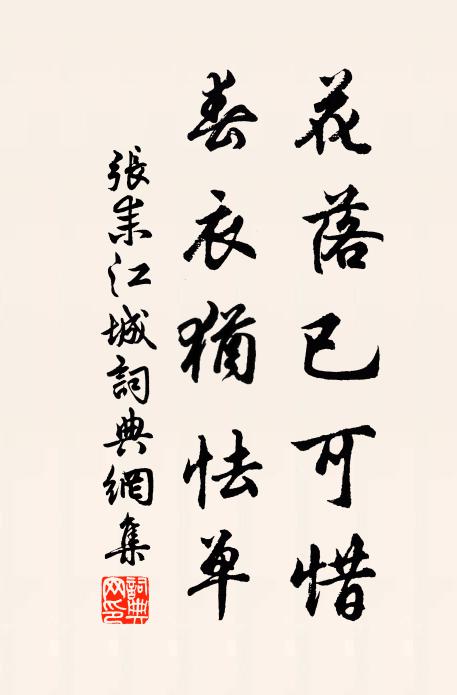 花落已可惜
春衣猶怯单
張耒江城詞典網集
詞典网印